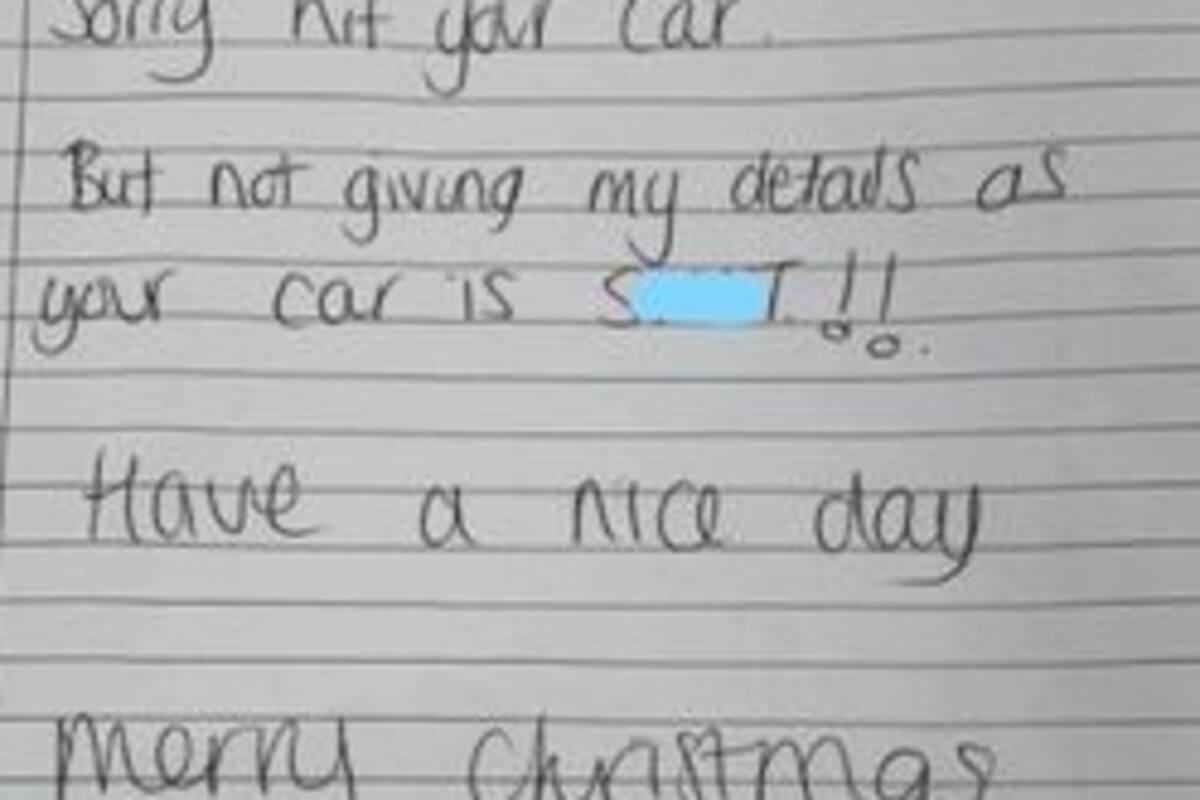 Sorry hit your car.
But not giving my details as
your car is S T!!
Have a nice day
Merry Christmas